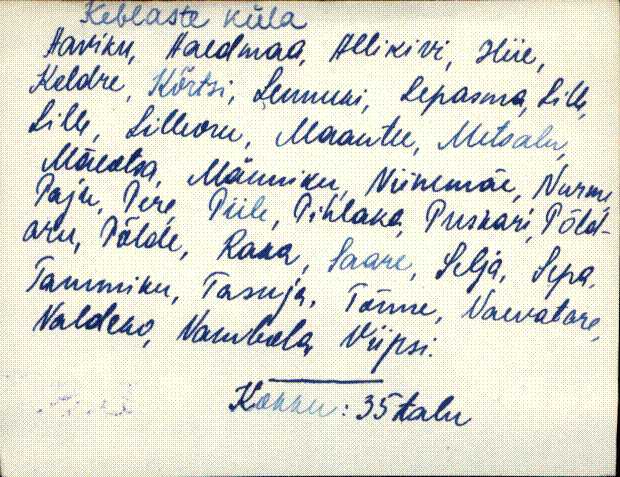 Keblaste küla
Aaviku, Haedmaa, Allikivi, Hiie,
Keldre, Kõrtsi, Lemmiki, Lepasma, Lille,
Lille, Lilleoru, Maantee, Metsalu,
Mäeotsa, Männiku, Niinemäe, Nurme,
Paju, Pere, Piile, Pihlaka, Puskari, Põld-
aru, Põlde, Raka, Saare, Selja, Sepa,
Tammiku, Tasuja, Tõnne, Vaevatare,
Valdeko, Vambola, Viipsi.
Kokku: 35 talu